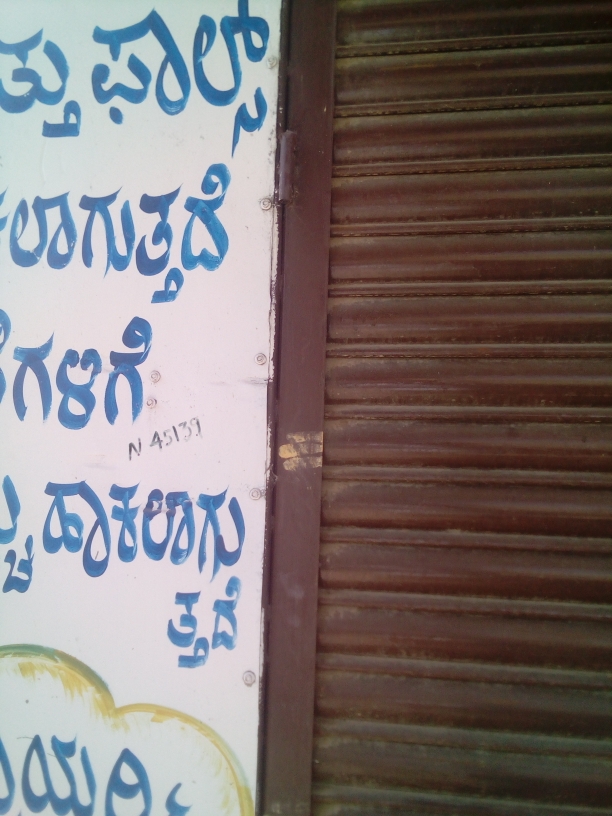 ತ್ತು ಫಾಲ್ಸ್
ಲಾಗುತ್ತದೆ
ಗಳಿಗೆ
N 45139
ಚ್ಚು ಹಾಕಲಾಗು
ತ್ತದೆ